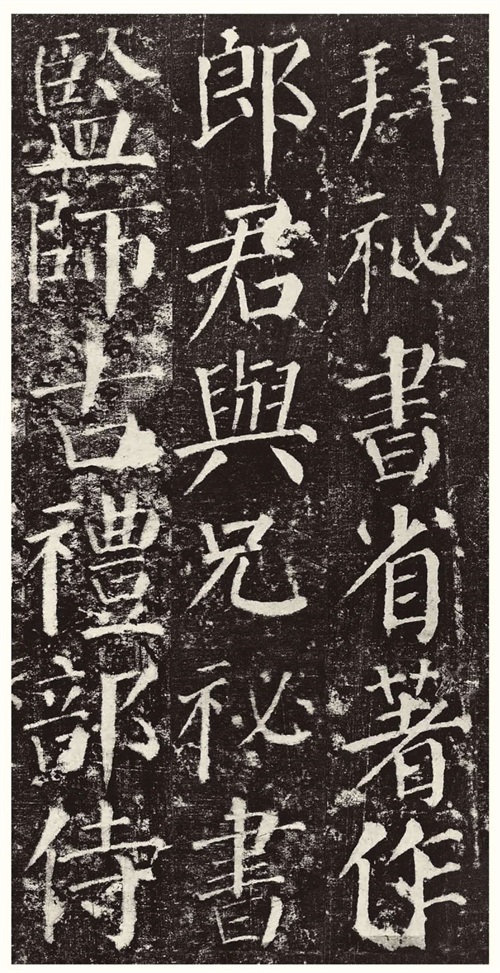 拜祕書省著作
郎君與兄祕書
監師古禮部侍